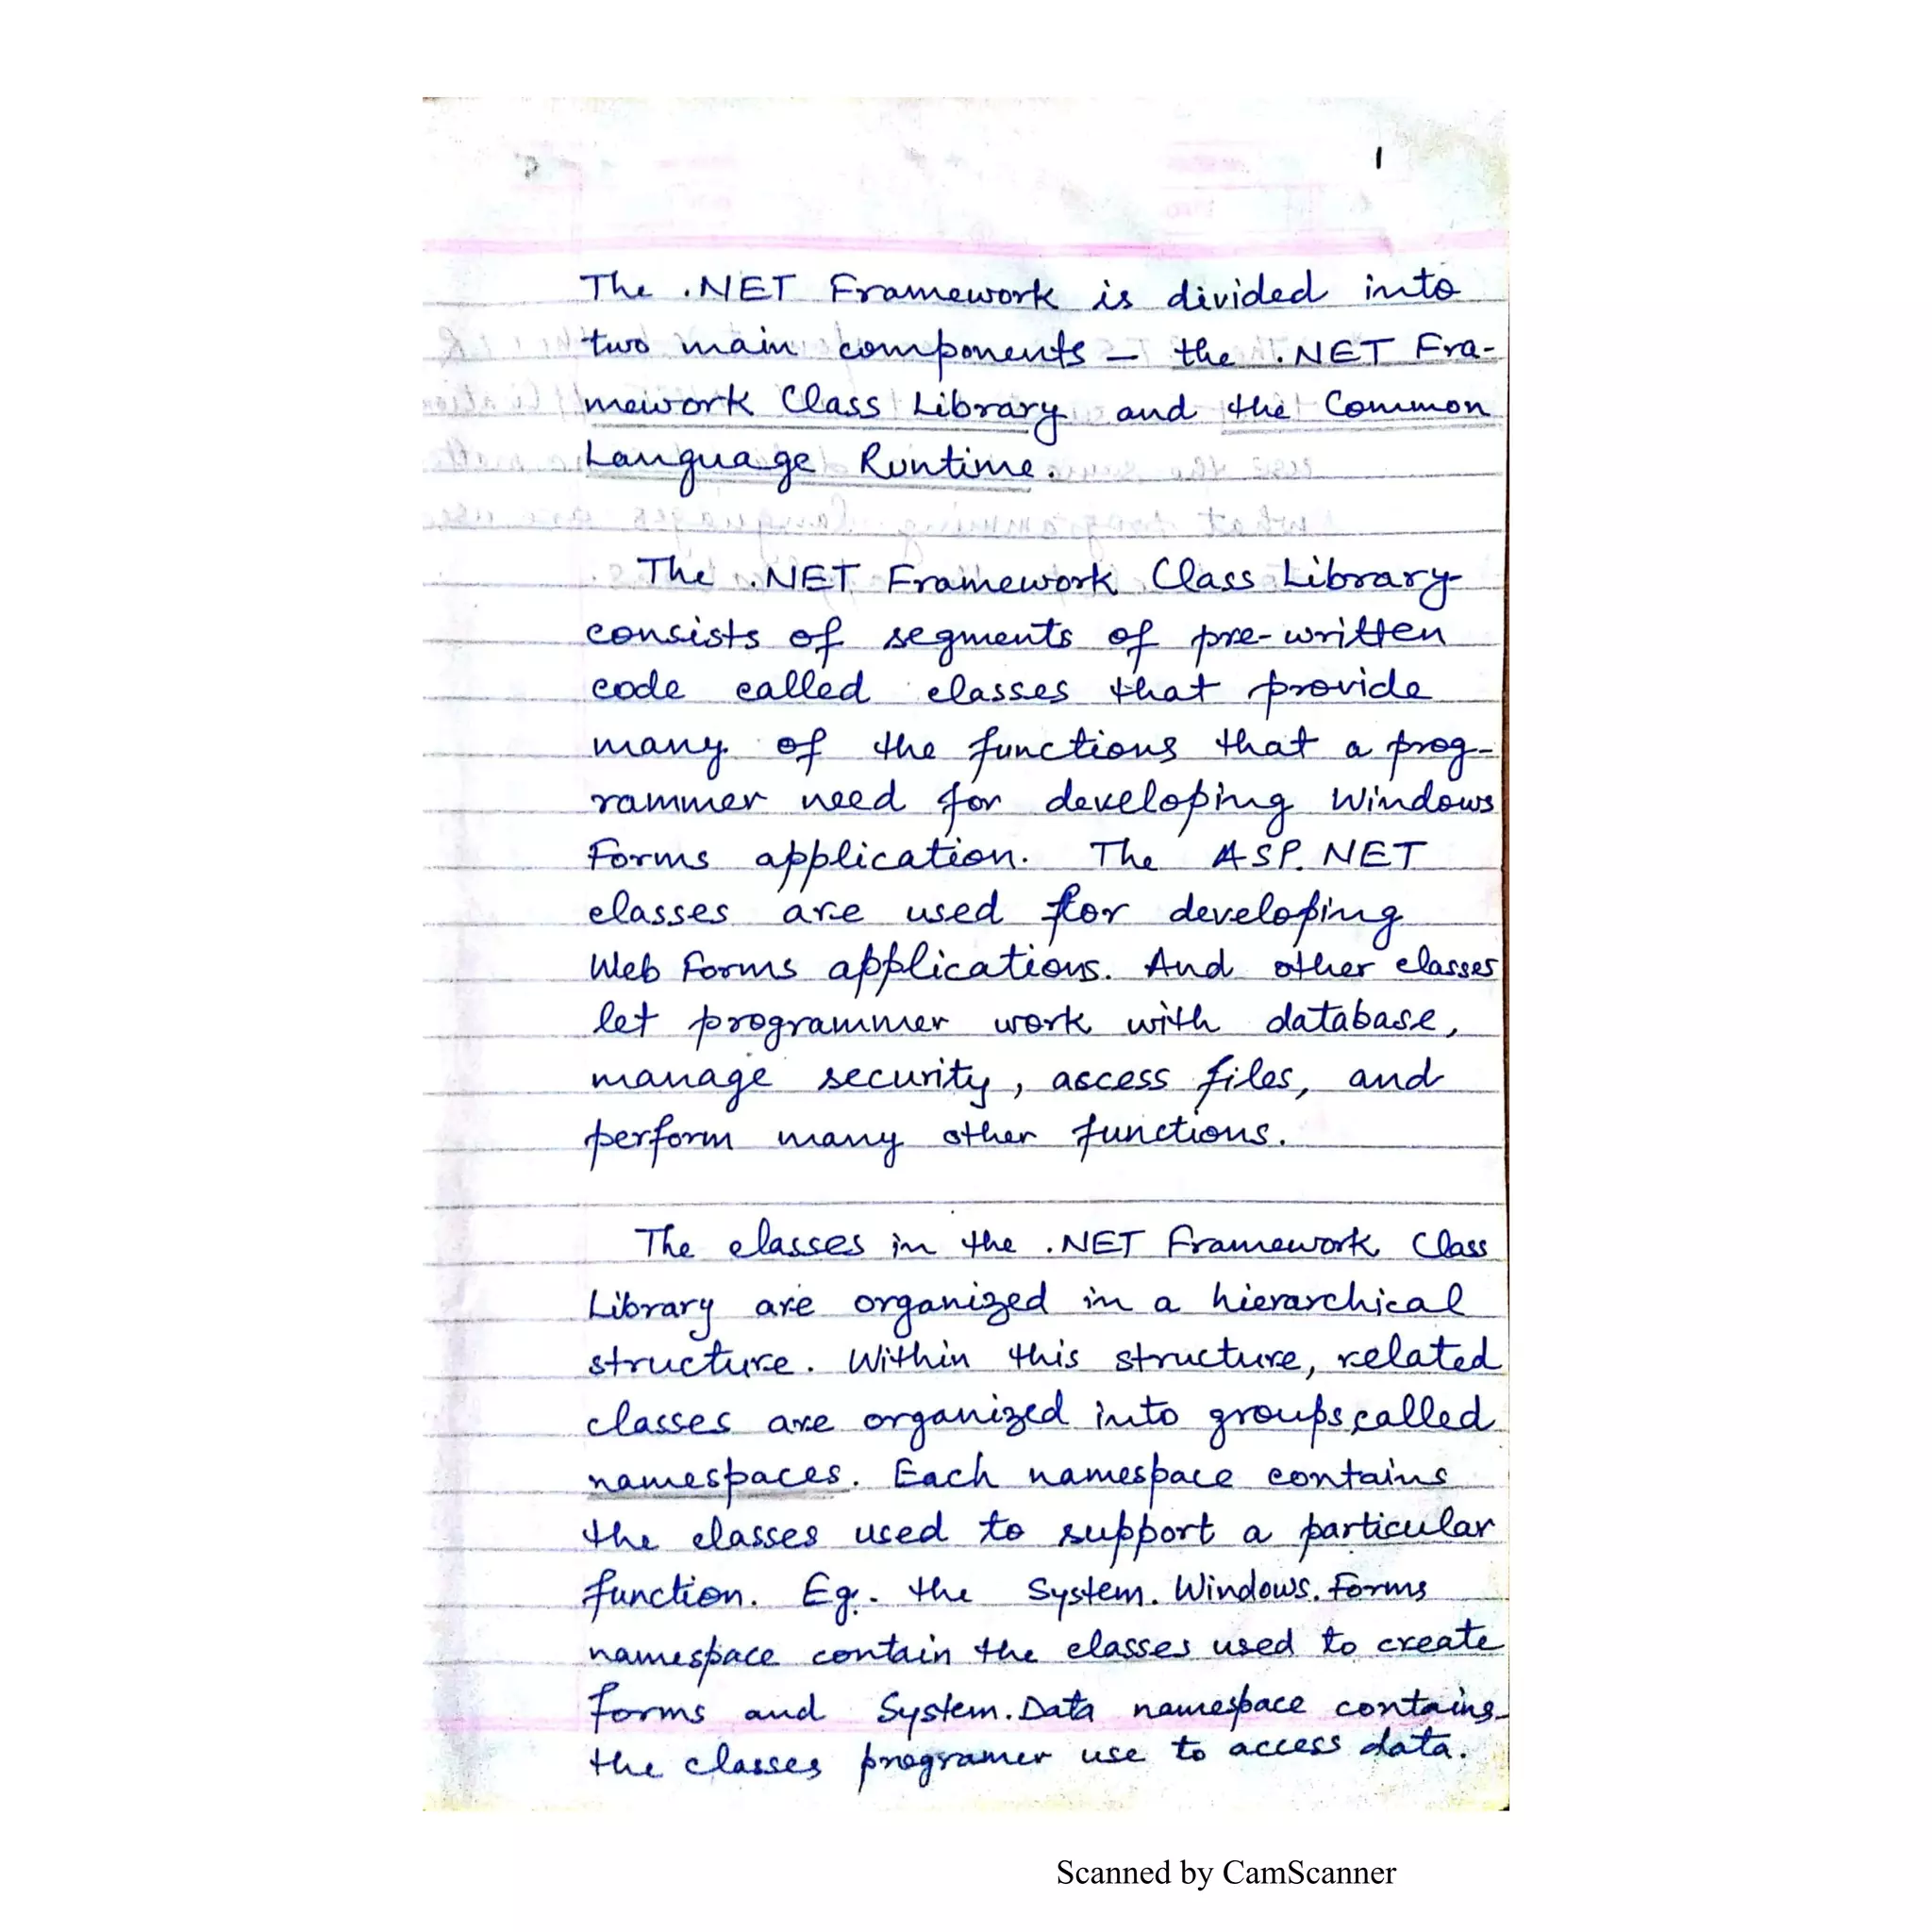 1
The .NET Framework is divided into
two main components – the .NET Fra-
mework Class Library and the Common
Language Runtime.
The .NET Framework Class Library
consists of segments of pre-written
code called classes that provide
many of the functions that a prog-
rammer need for developing Windows
Forms application. The ASP.NET
classes are used for developing
Web Forms applications. And other classes
let programmer work with database,
manage security, access files, and
perform many other functions.
The classes in the .NET Framework Class
Library are organized in a hierarchical
structure. Within this structure, related
classes are organized into groups called
namespaces. Each namespace contains
the classes used to support a particular
function. Eg. the System.Windows.Forms
namespace contain the classes used to create
forms and System.Data namespace contains
the classes programer use to access data.
Scanned by CamScanner